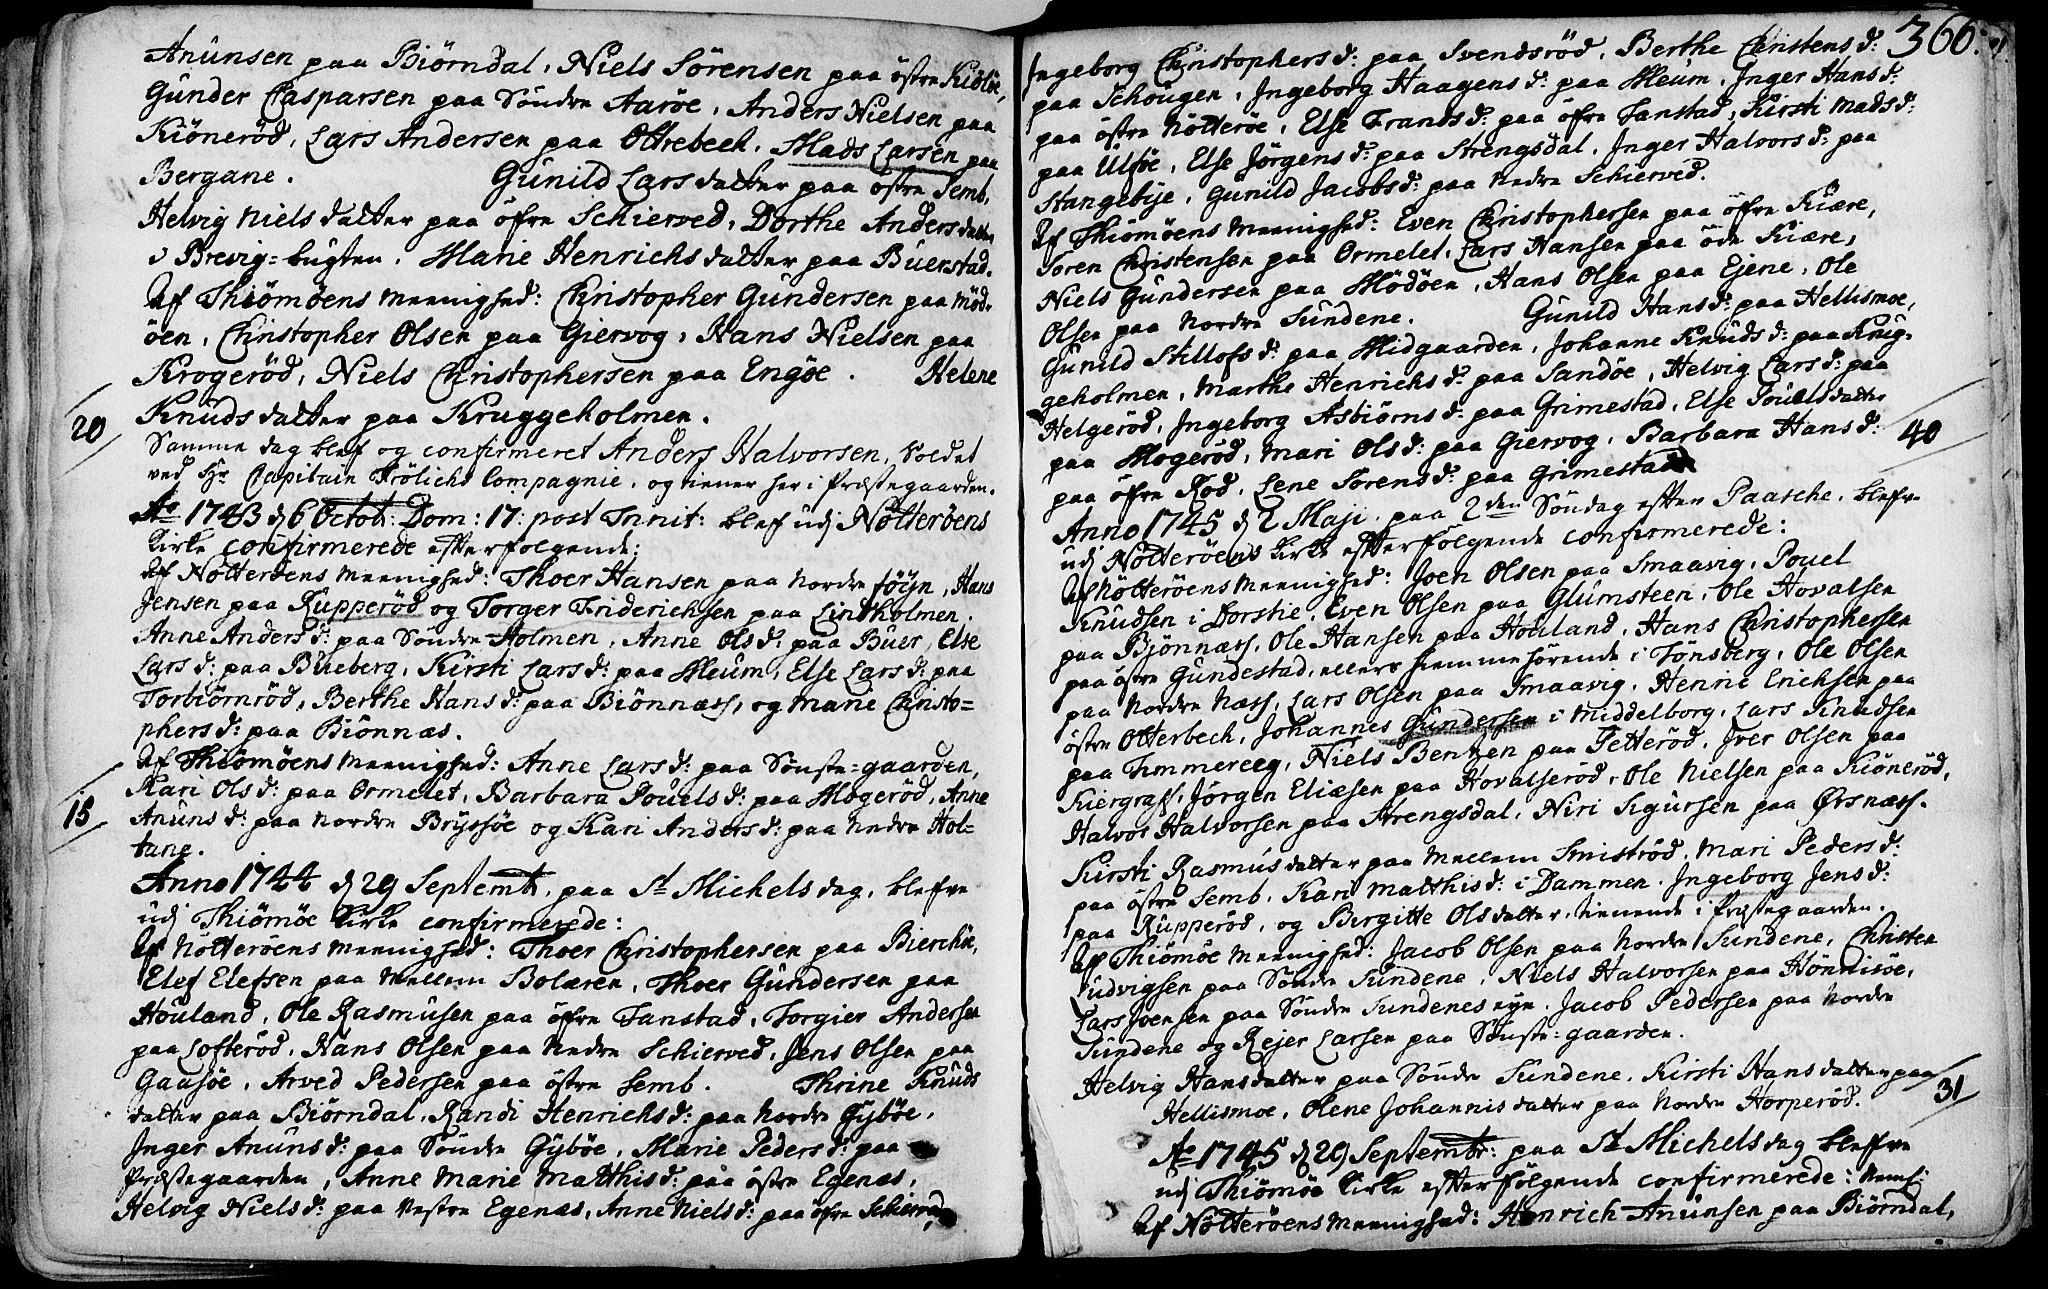 Anunsen paa Biörndal, Niels Sörensen paa östre Kiölöe,
Gunder Casparsen paa Söndre Aaröe, Anders Nielsen paa
Kiöneröd, Lars Andersen paa Ottrebech, Mads Larsen paa
Bergane. Gunild Larsdatter paa östre Semb,
Helvig Nielsdatter paa öfre Schierved, Dorthe Andersdatter
i Brevig-bugten. Marie Henrichsdatter paa Buerstad.
Af Thiömöens Meenighed: Christopher Gundersen paa Möd-
öen, Christopher Olsen paa Giervog, Hans Nielsen paa
Krogeröd, Niels Christophersen paa Engöe. Helene
Knudsdatter paa Kruggeholmen.
20
Samme dag blef og confirmeret Anders Halvorsen, Soldat
ved Hr. Capitain Frölichs Compagnie, og tiener her i Præstegaarden.
Ao 1743 d 6 Octob: Dom: 17: post Trinit: blef udj Nötteröens
Kirke confirmerede efterfolgende:
Af Nötteröens Meenighed: Thoer Hansen paa Nordre föyn, Hans
Jensen paa Rupperöd og Torger Friderichsen paa Lindholmen.
Anne Andersd: paa Söndre-Holmen, Anne Olsd: paa Buer, Else
Larsd: paa Bueberg, Kirsti Larsd: paa Meum, Else Larsd: paa
Torbiörnröd, Berthe Hansd: paa Biönnæss, og Marie Christo-
phersd: paa Biönnæs.
Af Thiömöens Meenighed: Anne Larsd: paa Söuste-gaarden,
Kari Olsd: paa Ormelet, Barbara Pouelsd: paa Mogeröd, Anne
15
Anunsd: paa Nordre Bryssöe og Kari Andersd: paa Nedre Hol-
tane.
Anno 1744 d 29 Septemb. paa St Michels dag, blefve
udj Thiömöe Kirke confirmerede:
Af Nötteröens Meenighed: Thoer Christophersen paa Bierchöe,
Elef Elefsen paa Mellem Bolæren, Thoer Gundersen paa
Houland, Ole Rasmusen paa öfre Tanstad, Torgier Andersen
paa Lofteröd, Hans Olsen paa Nedre Schierved, Jens Olsen paa
Gaasöe, Arved Pedersen paa östre Semb. Thrine Knuds
datter paa Biörndal, Randi Henrichsd: paa Nordre Gyböe,
Inger Anunsd: paa Söndre Gyböe, Marie Pedersd: paa
Præstegaarden, Anne Marie Matthisd: paa östre Egenæs,
Helvig Nielsd: paa Vestre Egenæs, Anne Nielsd: paa öfre Schierved,
366.
Ingeborg Christophersd: paa Svendsröd, Berthe Christensd:
paa Schougen, Ingeborg Haagensd: paa Meum, Inger Hansd:
paa östre Nötteröe, Else Frandsd: paa öfre Tanstad, Kirsti Madsd:
paa Ulföe, Else Jörgensd: paa Strengsdal, Inger Halvorsd: paa
Stangebije, Gunild Jacobsd: paa Nedre Schierved.
Af Thiömöens Meenighed: Even Christophersen paa öffre Kiære,
Soren Christensen paa Ormelet, Lars Hansen paa öde Kiære,
Niels Gundersen paa Mödöen, Hans Olsen paa Ejene, Ole
Olsen paa Nordre Sundene. Gunild Hansd: paa Hellismoe,
Gunild Stillofsd: paa Midgaarden, Johanne Knudsd: paa Krug-
geholmen, Marthe Henrichsd: paa Sandöe, Helvig Larsd: paa
Helgeröd, Ingeborg Asbiörnsd: paa Grimestad, Else Pouelsdatter
paa Mogeröd, Mari Olsd: paa Giervog, Barbara Hansd:
40
paa öfre Röd, Lene Sörensd: paa Grimestad
Anno 1745 d 2 Maji paa 2den Söndag efter Paasche, blefve
udj Nötteröens Kirke efterfölgende confirmerede:
Af Nötteröens Meenighed: Joen Olsen paa Smaavig, Pouel
Knudsen i Dorstie, Even Olsen paa Glumsteen, Ole Hovalsen
paa Bjönnæss, Ole Hansen paa Houland, Hans Christophersen
paa östre Gundestad, ellers hiemmehörende i Tönsberg, Ole Olsen
paa Nordre Næss, Lars Olsen paa Smaavig, Henne Erichsen paa
östre Otterbech, Johannes Gundersen i Middelborg, Lars Knudsen
paa Timmereeg, Niels Bentzen paa Tetteröd, Iver Olsen paa
Kiergrass, Jörgen Eliæsen paa Hovalseröd, Ole Nielsen paa Kiöneröd,
Halvor Halvorsen paa Strengsdal, Niri Sigursen paa Örsnæss.
Kirsti Rasmusdatter paa Mellem Smiströd, Mari Pedersd:
paa östre Semb, Kari Matthisd: i Dammen, Ingeborg Jensd:
paa Rupperöd, og Birgitte Olsdatter, tienende i Præstegaarden.
Af Thiömöe Meenighed: Jacob Olsen paa Nordre Sundene, Christen
Ludvigsen paa Söndre Sundene, Niels Halvorsen paa Hönnisöe,
Lars Joensen paa Söndre Sundenes eye, Jacob Pedersen paa Nordre
Sundene og Rejer Larsen paa Söuste-gaarden.
Helvig Hansdatter paa Söndre Sundene, Kirsti Hansdatter paa
31
Hellismoe, Olene Johannisdatter paa Nordre Horperöd.
Ao 1745 d 29 Septembr: paa St Michelsdag bleffve
udj Thiömöe Kirke efterfölgende confirmerede:
Af Nötteröens Meenighed: Henrich Anunsen paa Biörndal,